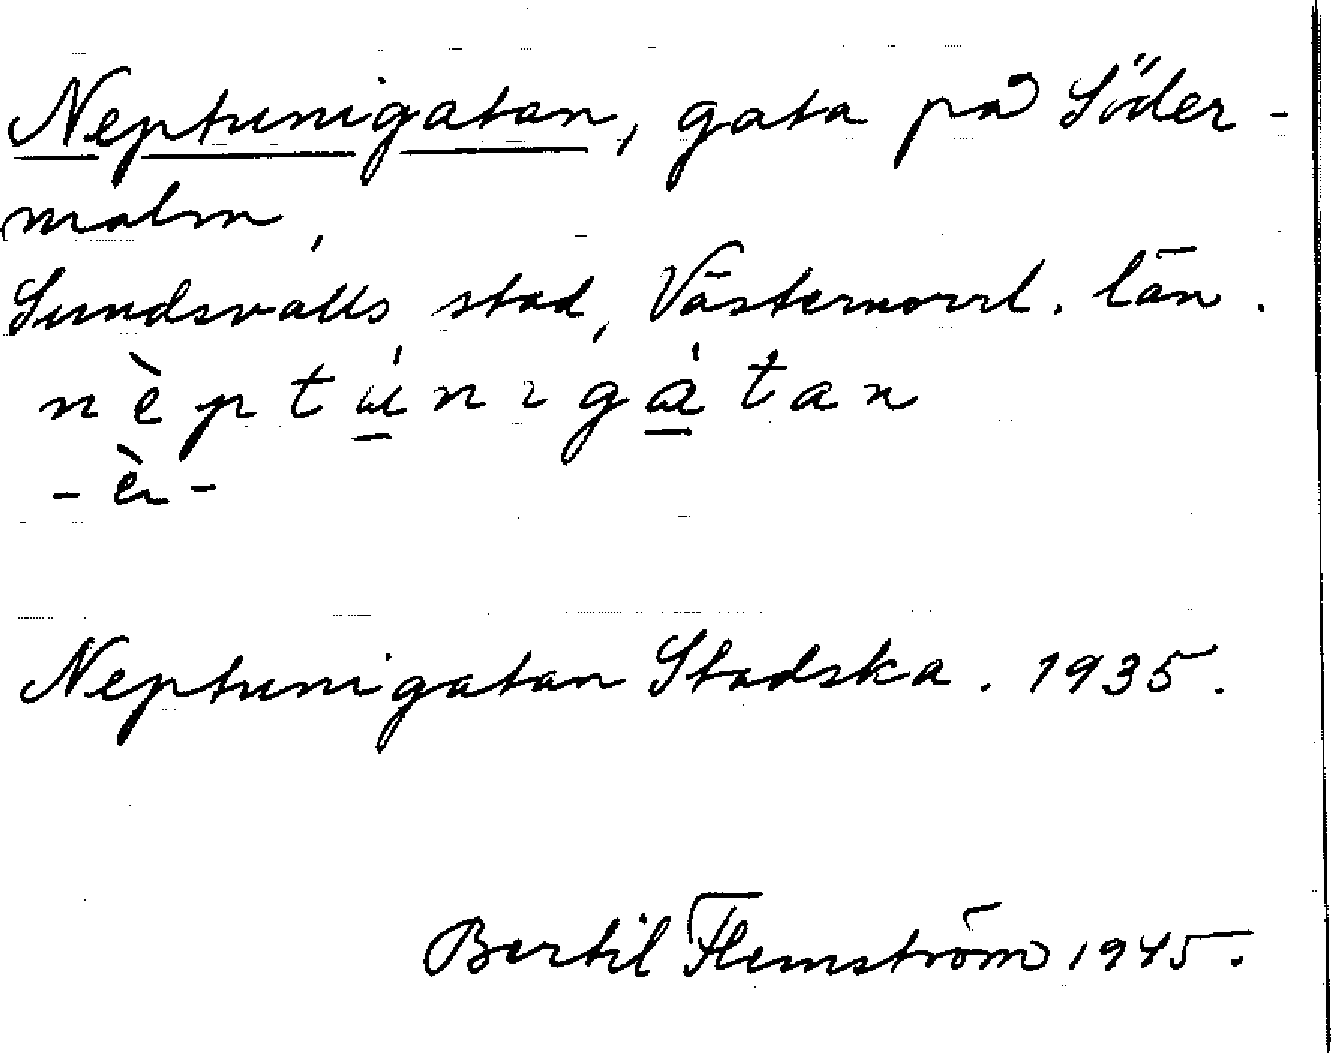 Neptunigatan, gata på Söder-
malm,
Sundsvalls stad, Västernorrl. län.
nèptúnıgàtan
- è -
Neptunigatan Stadska. 1935.
Bertil Flemström 1945.